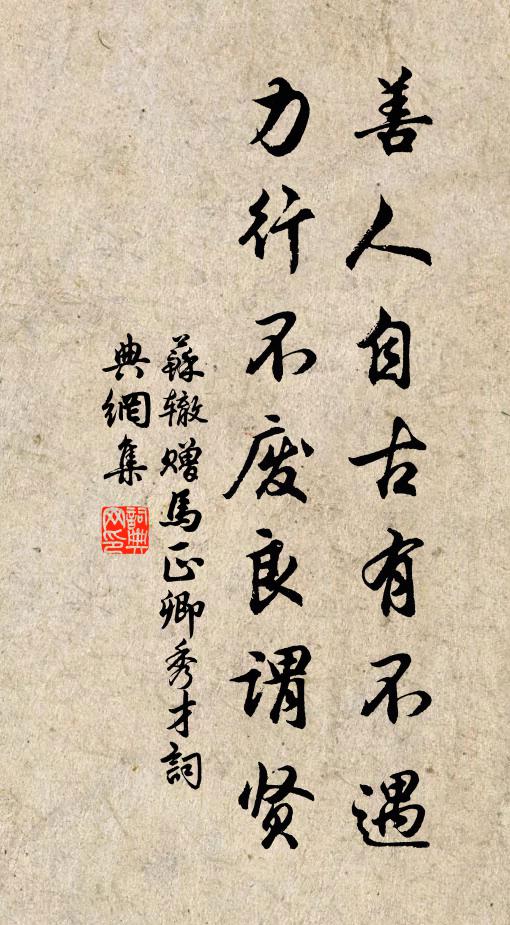 善人自古有不遇
力行不废良谓贤
蘇辙赠馬正卿秀才詞
典網集
詞典网印